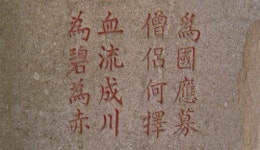 為國應募
僧侶何擇
血流成川
為碧為赤